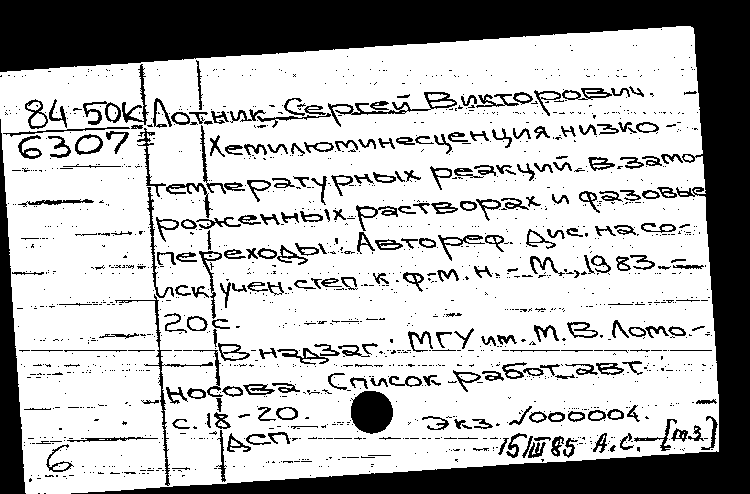 84-50К Лотник, Сергей Викторович.
6307= Хемилюминесценция низко-
температурных реакций в замо-
роженных растворах и фазовые
переходы: Автореф. дис. на со-
иск. учен. степ. к. ф.-м. н. - М., 1983. -
20 с.
В надзаг.: МГУ им. М.В. Ломо-
носова. Список работ авт.
с. 18-20. Экз. №000004.
ДСП
15/III 85 А.С. [т.з.]
6